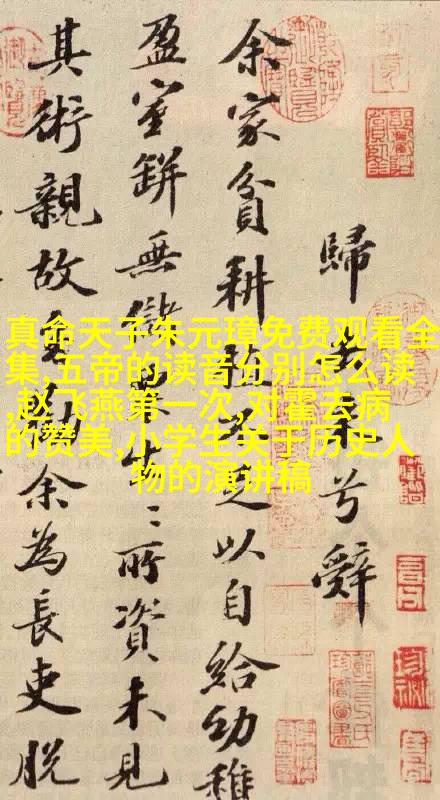 歸去来兮辭
余家貧耕植不足以自給幼稚
盈室缾無儲粟生〻所資未見
其術親故多勸余為長吏脫
真命天子朱元璋免费观看全
集,五帝的读音分别怎么读
,赵飞燕第一次,对霍去病
的赞美,小学生关于历史人
物的演讲稿